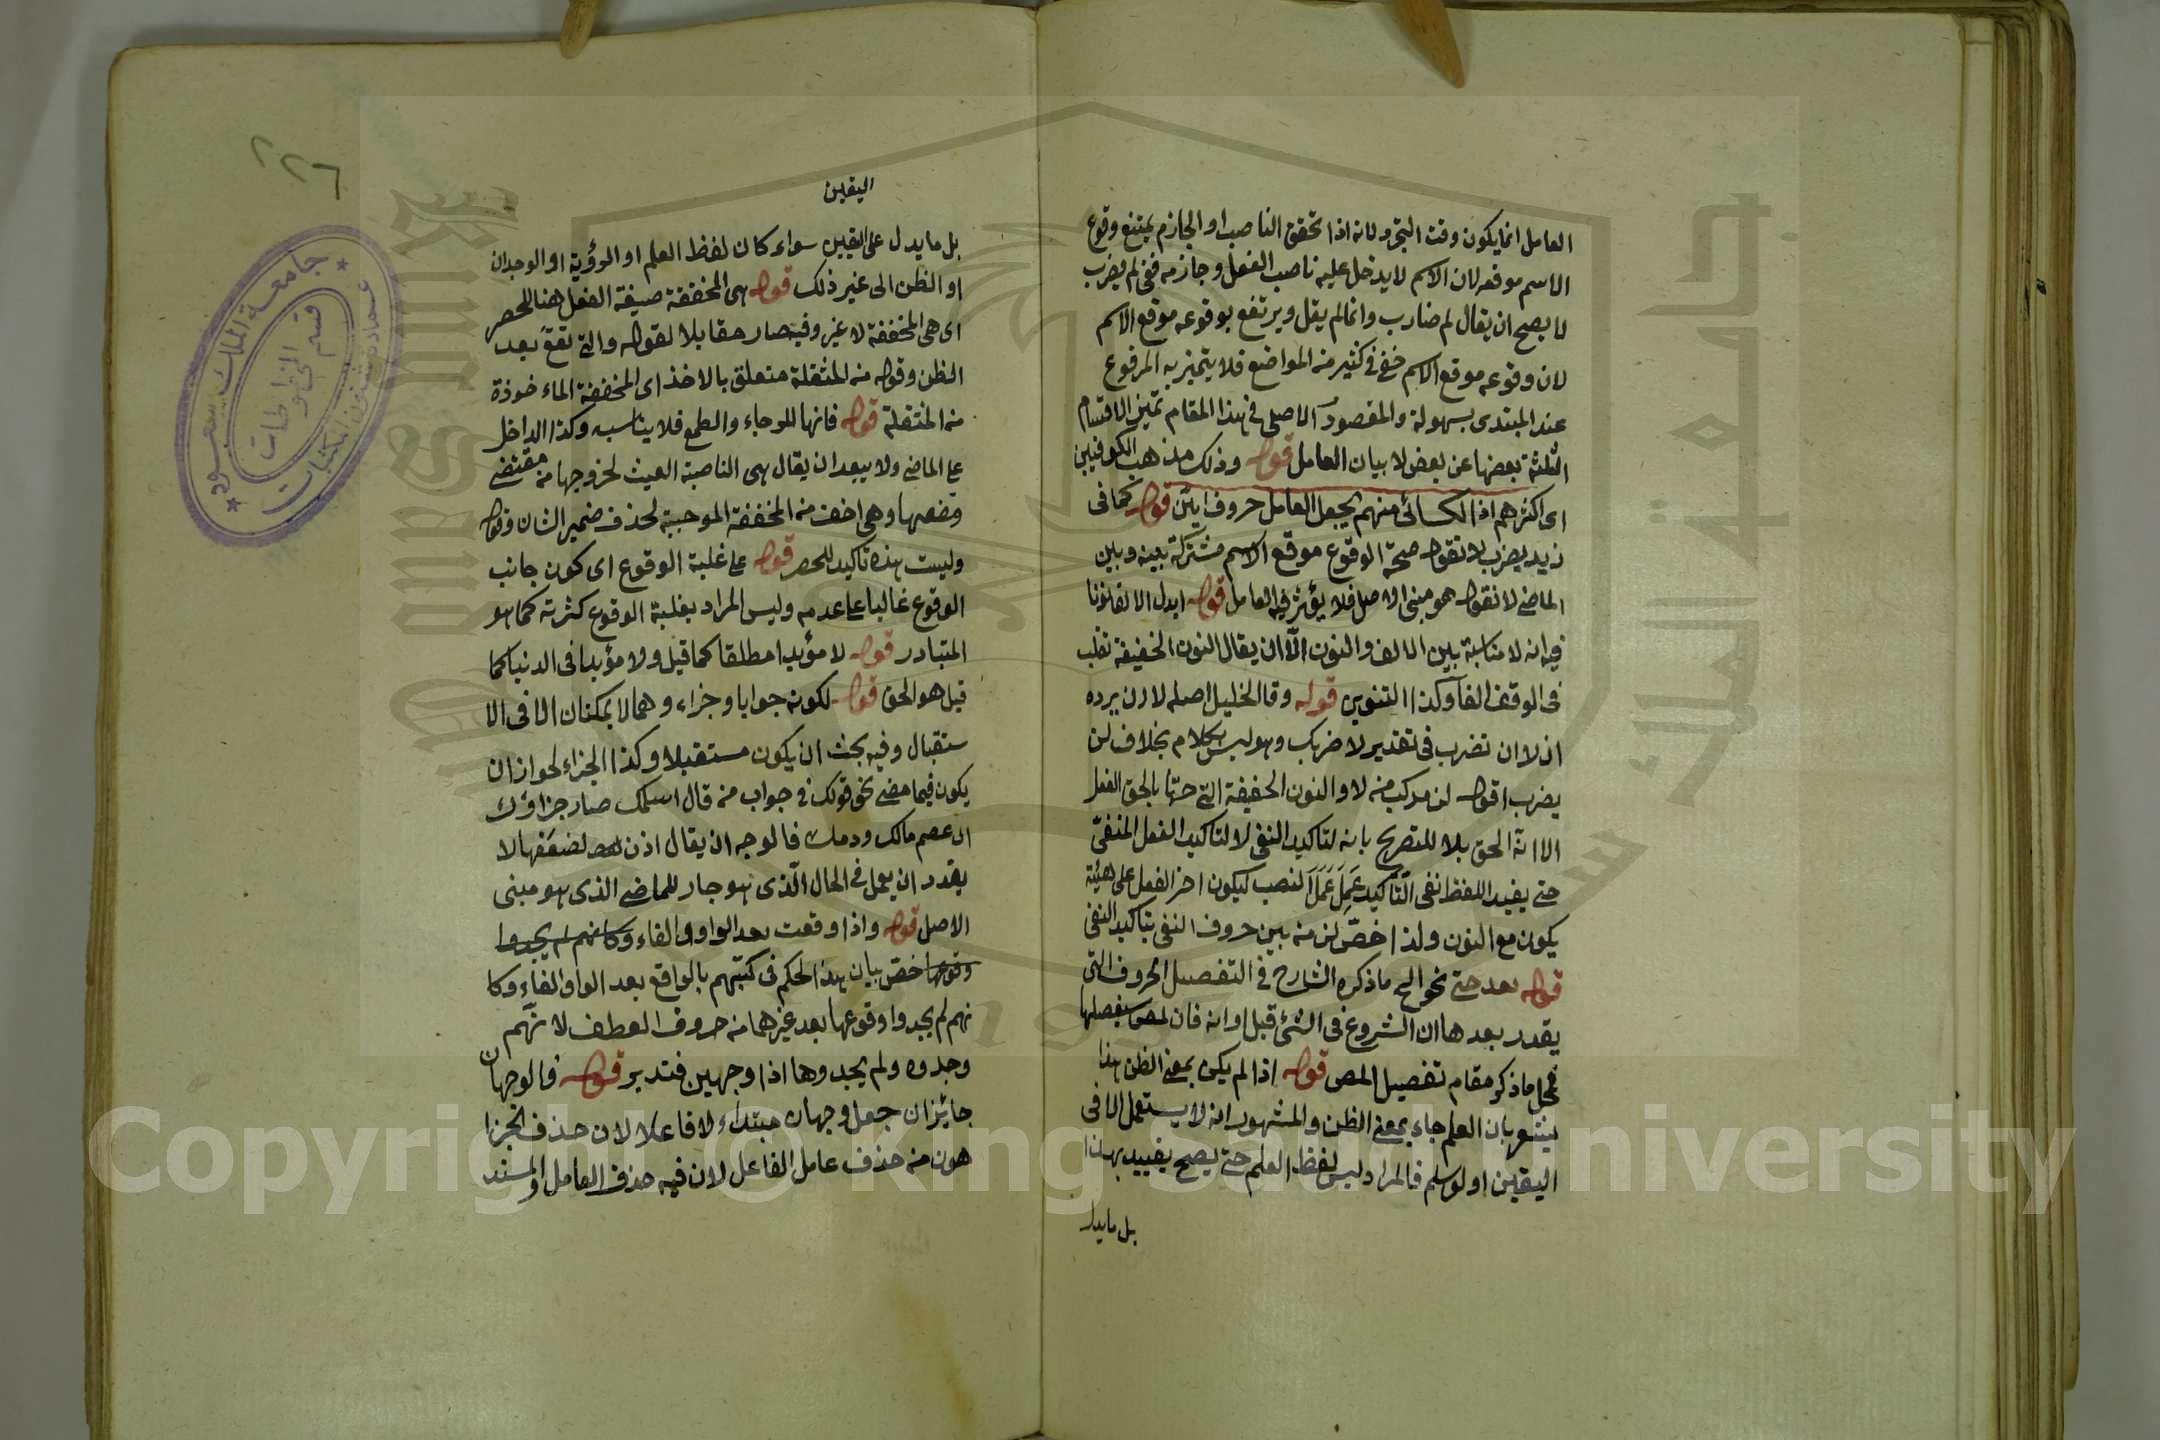 العامل انما يكون وقت التجرد لانه اذا تحقق الناصب او الجازم يمتنع وقوع
الاسم موقعه لان الاسم لا يدخل عليه ناصب الفعل وجازمه ففى لم يضرب
لا يصح ان يقال لم ضارب وانما لم يقل ويرتفع بوقوعه موقع الاسم
لان وقوعه موقع الاسم خفى فى كثير من المواضع فلا يتميز به المرفوع
عند المبتدى بسهولة والمقصود الاصلى فى هذا المقام تميز الاقسام
الثلثة بعضها عن بعض لا بيان العامل قوله وذلك مذهب الكوفيين
اى اكثرهم اذ الكسائى منهم يجعل العامل حروف اتين قوله كما فى
زيد يضرب لا نقول صحة الوقوع موقع الاسم مشتركة بينه وبين
الماضى لا نقول هو مبنى الاصل فلا يؤثر فيه العامل قوله ابدل الالف نونا
فيه انه لا مناسبة بين الالف والنون الا ان يقال النون الخفيفة تقلب
فى الوقف الفا وكذا التنوين قوله وقال الخليل اصله لا ان يرده
ان لا ان تضرب فى تقدير لا ضربك وهو ليس بكلام بخلاف لن
يضرب اقول لن مركب من لا والنون الخفيفة التى حقها بالحق الفعل
الا انه الحق بلا للتصريح بانه لتاكيد النفى لا لتاكيد الفعل المنفى
حتى يفيد اللفظ نفى التاكيد عمل عمل النصب ليكون اخر الفعل على هيئة
يكون مع النون ولذا خص لن من بين حروف النفى بتاكيد النفى
قوله بعد حتى نحو الى ما ذكره الشارح فى التفصيل الحروف التى
يقدر بعدها ان الشروع فى الشئ قبل اوانه فان المص سيفصلها
فحل ما ذكر مقام تفصيل المص قوله اذا لم يكن بمعنى الظن هذا
يشعر بان العلم جاء بمعنى الظن والمشهور انه لا يستعمل الا فى
اليقين او لو سلم فالمراد ليس لفظ العلم حتى يصح تقييد بهذا
بل ما يدل
٢٢٦
اليقين
بل ما يدل على اليقين سواء كان لفظ العلم او الرؤية او الوجدان
او الظن الى غير ذلك قوله هى المخففة صيغة الفعل هنا للحصر
اى هى المخففة لا غير وفيه صار مقابلا لقوله والتى تقع بعد
الظن وقوله من المثقلة متعلق بالاخذ اى المخففة الماء خوذة
من المثقلة قوله فانها للرجاء والطمع فلا يناسبه وكذا الداخل
على الماضى ولا يبعد ان يقال هى الناصبة لخروجها من مقتضى
وضعها وهى اخف من المخففة الموجبة لحذف ضمير الشان وقوله
وليست هذه تاكيد للحصر قوله على غلبة الوقوع اى كون جانب
الوقوع غالبا على عدمه وليس المراد بغلبة الوقوع كثرته كما هو
المتبادر قوله لا مؤبدا مطلقا كما قيل ولا مؤبدا فى الدنيا كما
قيل هو الحق قوله لكونه جوابا وجزاء وهما لا يمكنان الا فى الا
ستقبال وفيه بحث ان يكون مستقبلا وكذا الجزاء لجواز ان
يكون فيما مضى نحو قولك فى جواب من قال اسلمك صار جزاؤك
ان عصم مالك ودمك فالوجه ان يقال اذن لضعفها لا
يقدر ان يعمل فى الحال الذى هو جار للماضى الذى هو مبنى
الاصل قوله واذا وقعت بعد الواو والفاء وكانهم لم يجدوا
وقوعها خص بيان هذا الحكم فى كتبهم بالواقع بعد الواو والفاء وكا
نهم لم يجدوا وقوعها بعد غيرهما من حروف العطف لا نهم
وجدوه ولم يجدوها اذا وجهين فتدبر قوله فالوجهان
جائزان جعل وجهان مبتداء لا فاعلا لان حذف الخبر ا
هون من حذف عامل الفاعل لان فيه حذف العامل والمسند
جامعة الملك سعود
عمادة شؤون المكتبات
قسم المخطوطات
جامعة الملك سعود
King Saud University
Copyright © King Saud University